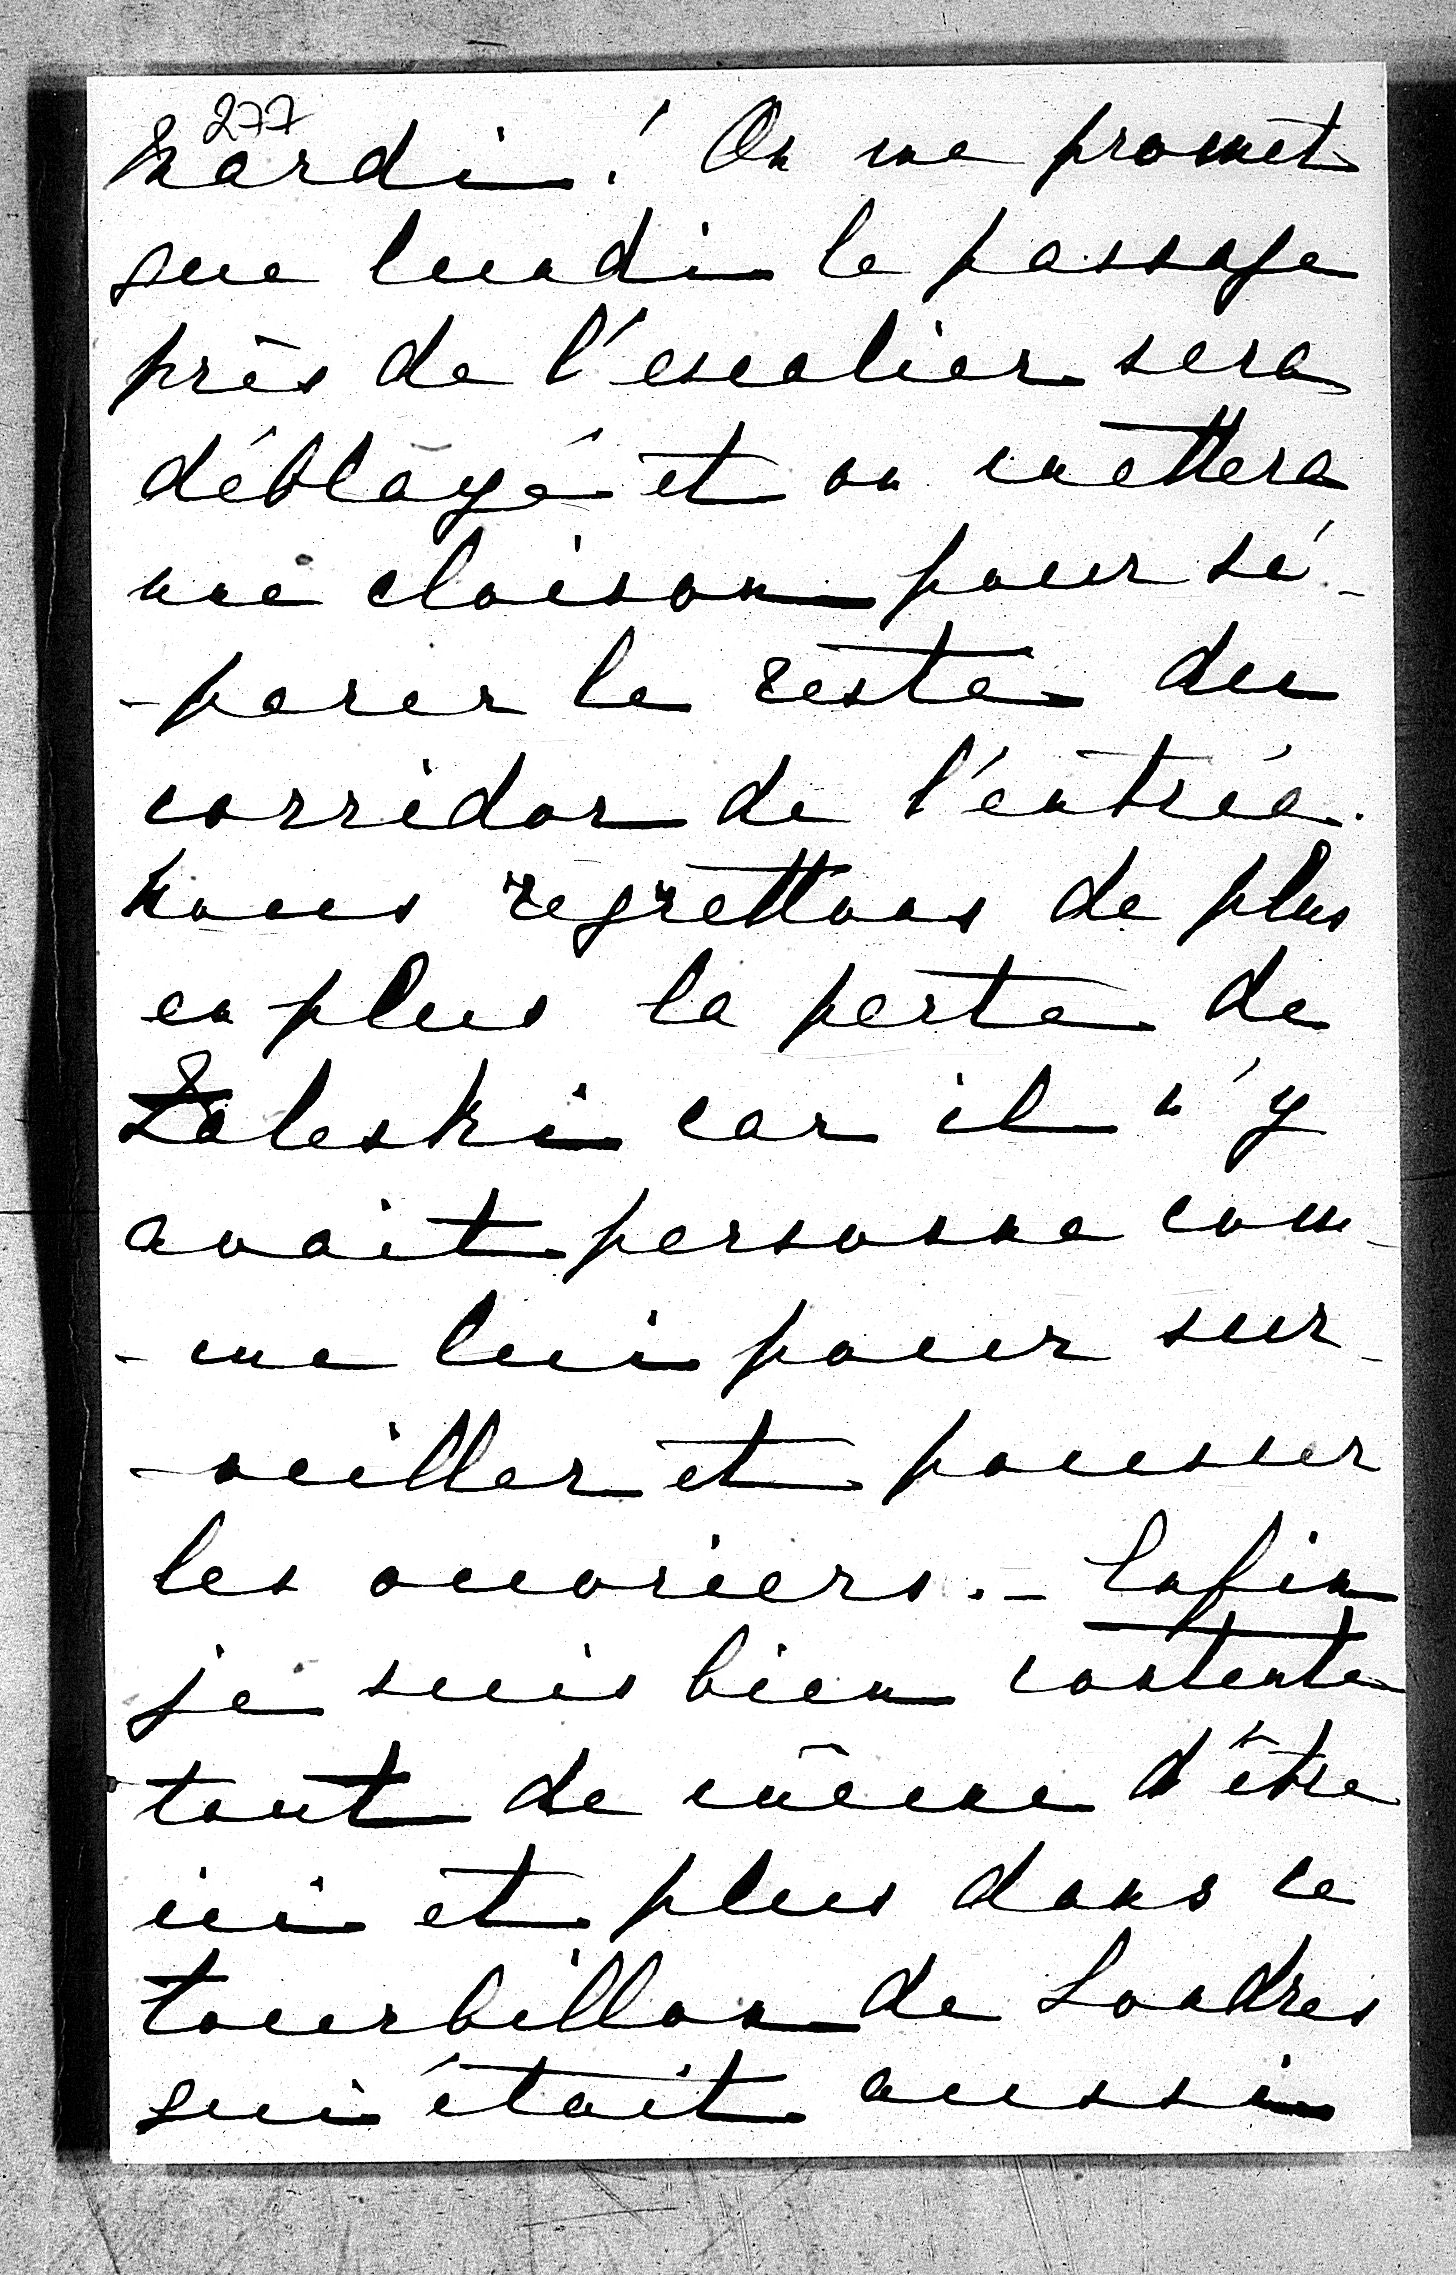 277
Mardi! On me promet
que lundi le passage
près de l'escalier sera
déblayé et on mettera
une cloison pour sé-
-parer le reste du
corridor de l'entrée.
Nous regrettons de plus
en plus la perte de
Zaleski car il n'y
avait personne com-
-me lui pour sur-
-veiller et pousser
les ouvriers. - Enfin
je suis bien contente
tout de même d'être
ici et plus dans ce
tourbillon de Londres
qui était aussi